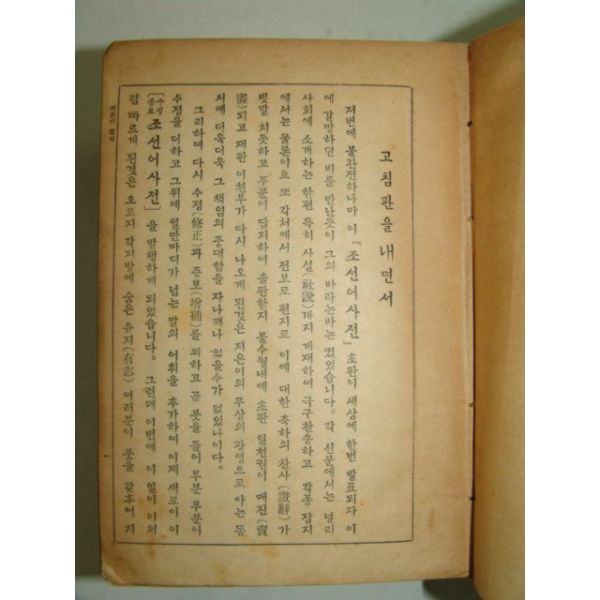 고침판을 내면서
저번에 불완전하나마 이 「조선어사전」 초판이 세상에 한번 발표되자 이
에 갈망하던 비를 만난듯이 그의 바라는바는 컸었습니다. 각 신문에서는 널리
사회에 소개하는 한편 특히 사설(社說)까지 게재하여 극구찬송하고 각종 잡지
에서는 물론이요 또 각처에서 전보로 편지로 이에 대한 축하의 찬사(讚辭)가
빗발 치듯하고 주문이 답지하여 출판한지 불수월내에 초판 일천원이 매진(賣
盡)되고 재판 이천부가 다시 나오게 된것은 지은이의 무상의 광영으로 아는 동
시에 더욱더욱 그 책임의 중대함을 자나깨나 잊을수가 없었나이다.
그리하여 다시 수정(修正)과 증보(增補)를 꾀하고 곧 붓을 들어 부분 부분이
수정을 더하고 그위에 일만마디가 넘는 말의 어휘을 추가하여 이제 새로이 이
〔수정증보 조선어사전〕을 발행하게 되었습니다. 그런데 이번에 이 일이 이처
럼 빠르게 된것은 오로지 각지방에 숨은 유지(有志) 여러분이 붓을 갖추어 지